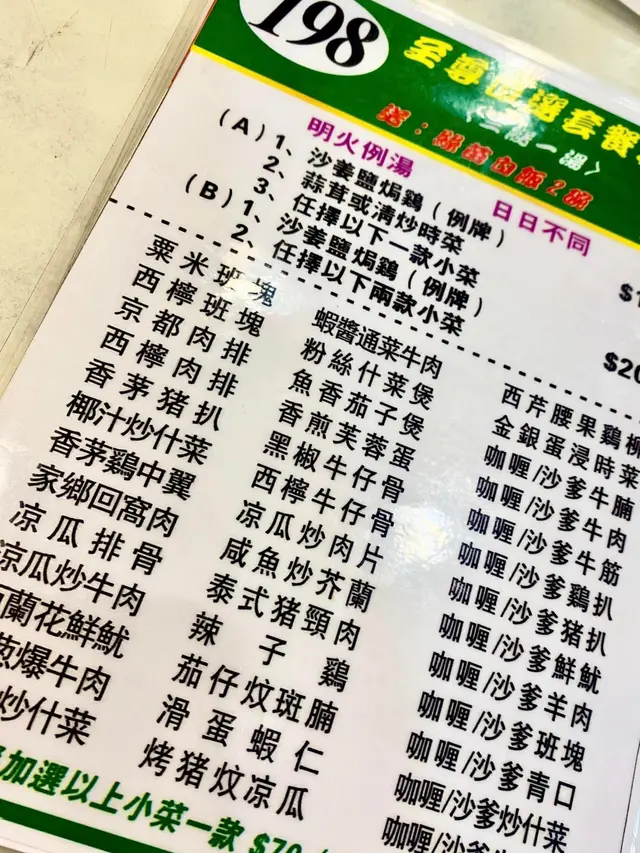 198
至尊
選套餐
送：絲苗白飯2碗
明火例湯 日日不同
(A) 1、沙姜鹽焗鷄（例牌）
2、蒜茸或清炒時菜
3、任擇以下一款小菜 $1
(B) 1、沙姜鹽焗鷄（例牌）
2、任擇以下兩款小菜 $20
粟米班塊
西檸班塊
京都肉排
西檸肉排
香茅豬扒
椰汁炒什菜
香茅鷄中翼
家鄉回窩肉
凉瓜排骨
凉瓜炒牛肉
蘭花鮮魷
爆牛肉
炒什菜
蝦醬通菜牛肉
粉絲什菜煲
魚香茄子煲
香煎芙蓉蛋
黑椒牛仔骨
西檸牛仔骨
凉瓜炒肉片
咸魚炒芥蘭
泰式猪頸肉
辣子鷄
茄仔炆斑腩
滑蛋蝦仁
烤猪炆凉瓜
西芹腰果鷄柳
金銀蛋浸時菜
咖喱/沙爹牛腩
咖喱/沙爹牛肉
咖喱/沙爹牛筋
咖喱/沙爹鷄扒
咖喱/沙爹豬扒
咖喱/沙爹鮮魷
咖喱/沙爹羊肉
咖喱/沙爹班塊
咖喱/沙爹青口
咖喱/沙爹炒什菜
咖喱/沙爹
加選以上小菜一款 $70